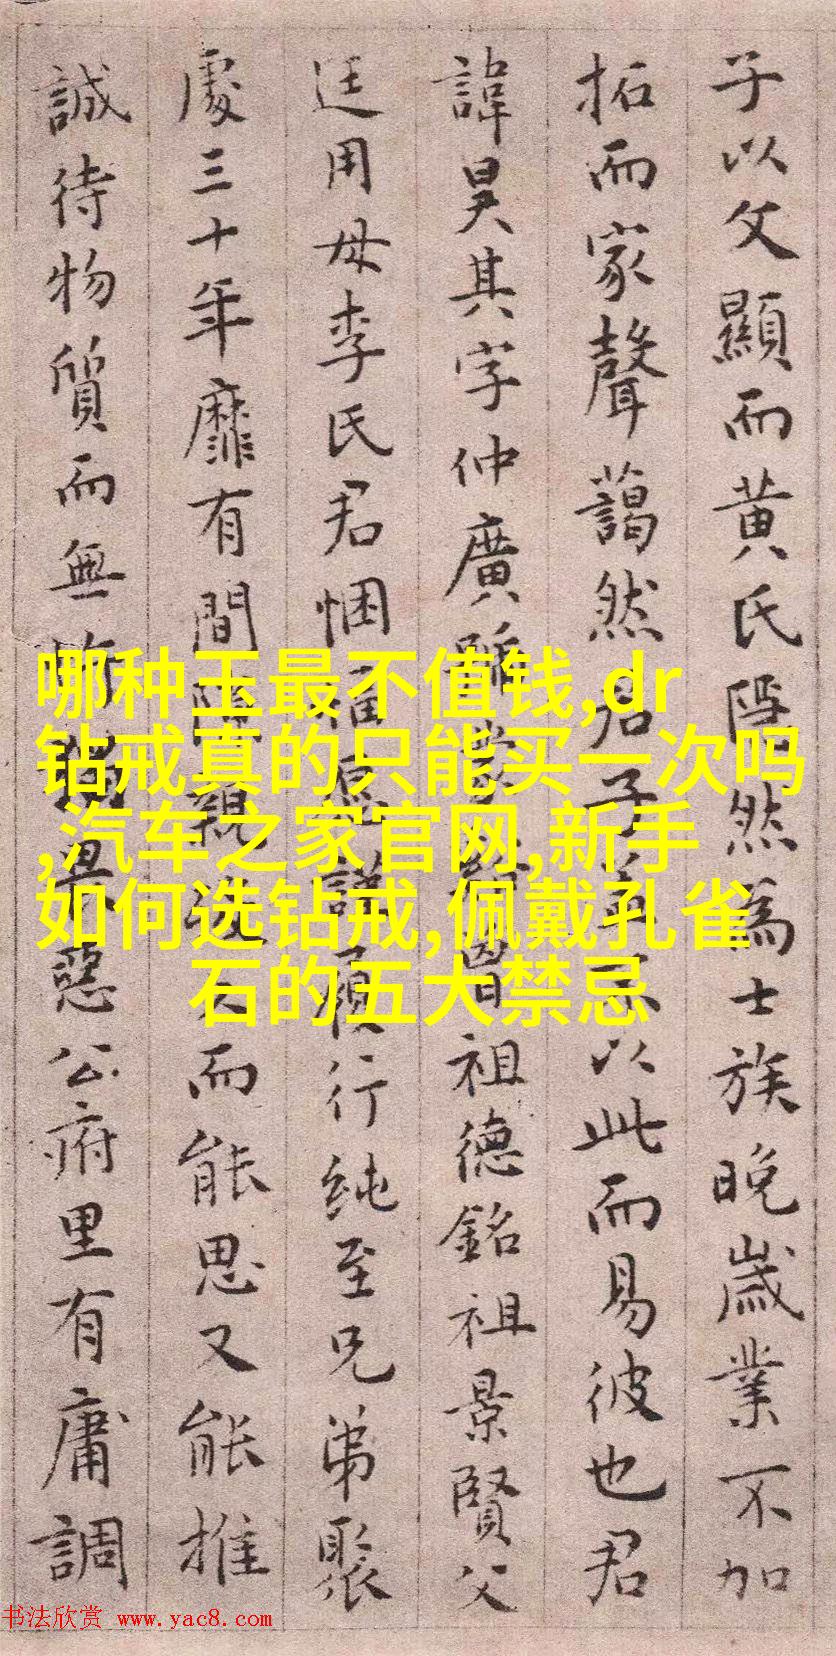 子以父顯而黄氏然為士族晚歲業不加
拓而家聲藹然君子盖不以此而易彼也君
諱昊其字仲廣號祖德銘祖景賢父
廷用母李氏君悃愊謹願行純至兄弟聚
處三十年靡有間親而能思又能推
誠待物質而無惡公府里有庸調
哪种玉最不值钱,dr
钻戒真的只能买一次吗
,汽车之家官网,新手
如何选钻戒,佩戴孔雀
石的五大禁忌
书法欣赏 www.yac8.com